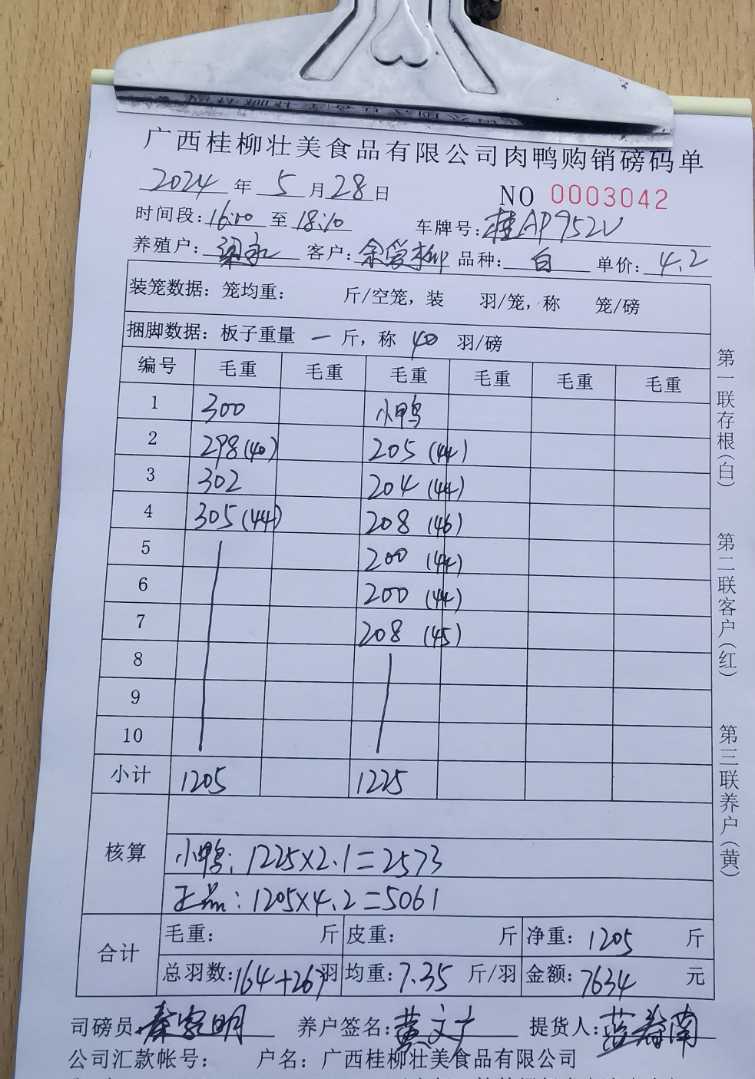 广西桂柳壮美食品有限公司肉鸭购销磅码单
2024 年 5 月 28 日 NO 0003042
时间段: 16:00 至 18:10 车牌号: 桂AP952V
养殖户: 客户: 余爱柳 品种: 白 单价: 4.2
装笼数据: 笼均重: 斤/空笼, 装 羽/笼, 称 笼/磅
捆脚数据: 板子重量 一 斤, 称 40 羽/磅
编号 毛重 毛重 毛重 毛重 毛重 毛重
1 300 小鸭
2 298(40) 205 (44)
3 302 204 (44)
4 305(44) 208 (46)
5 200 (44)
6 200 (44)
7 208 (45)
8
9
10
小计 1205 1225
核算
小鸭: 1225×2.1=2573
正品: 1205×4.2=5061
合计
毛重: 斤 皮重: 斤 净重: 1205 斤
总羽数: 164+267 羽 均重: 7.35 斤/羽 金额: 7634 元
司磅员: 秦家明 养户签名: 黄文广 提货人: 蓝春南
公司汇款帐号: 户名: 广西桂柳壮美食品有限公司
第一联存根(白) 第二联客户(红) 第三联养户(黄)